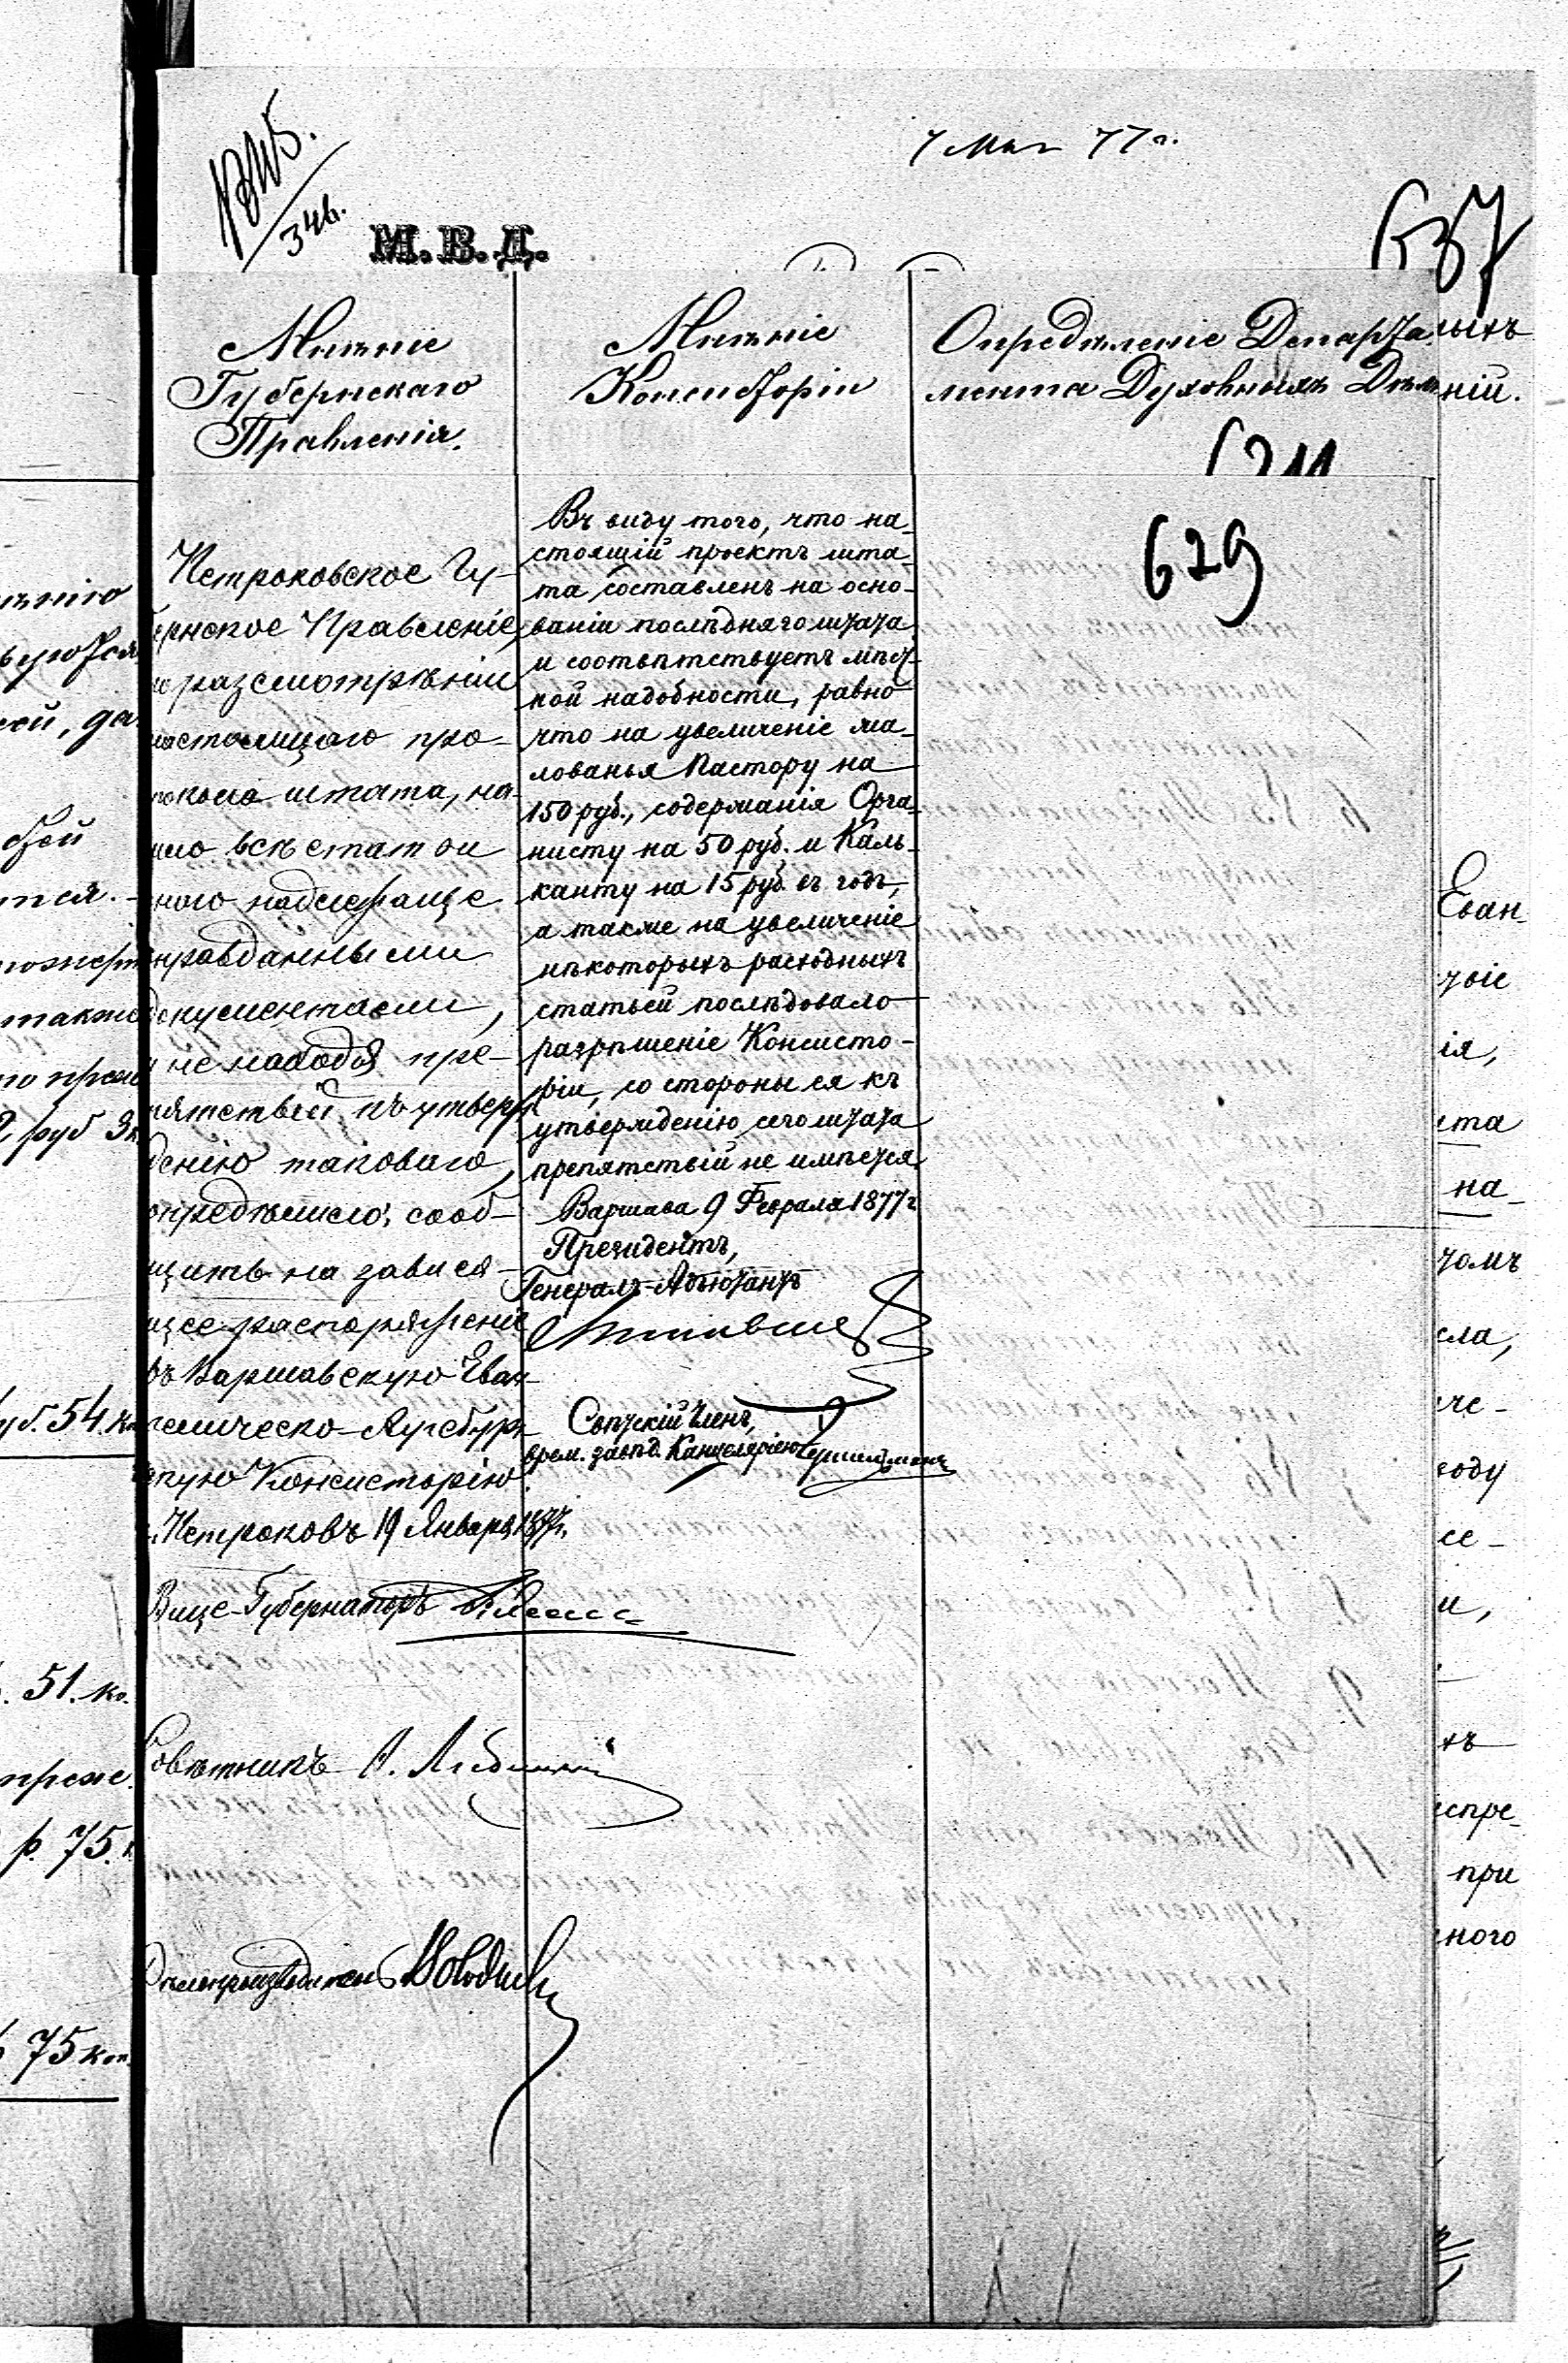 7 Мая 77 г.
346.
М.В.Д.
637
Мнѣніе
Губернскаго
Правленія.
Мнѣніе
Консисторіи
Опредѣленіе Департа-
мента Духовныхъ Дѣлъ
ыхъ
ній.
629
Петроковское Гу-
ернское Правленіе,
разсмотрѣніи
настоящаго про-
штата, на-
всѣ статьи
надлежаще
оправданными
документами,
и не находя пре-
пятствій къ утверж-
денію таковаго,
опредѣлило: сооб-
щить на завися-
щее распоряженіе
въ Варшавскую Еван-
гелическо-Аугсбург-
скую Консисторію.
г. Петроковъ 19 Января 1877 г.
Вице-Губернаторъ
Совѣтникъ
Дѣлопроизводитель
Въ виду того, что на-
стоящій проектъ шта-
та составленъ на осно-
ваніи послѣдняго штата
и соотвѣтствуетъ мѣст-
ной надобности, равно
что на увеличеніе жа-
лованья Пастору на
150 руб., содержанія Орга-
нисту на 50 руб. и Каль-
канту на 15 руб. въ годъ,
а также на увеличеніе
нѣкоторыхъ расходныхъ
статьей послѣдовало
разрѣшеніе Консисто-
ріи, со стороны ея къ
утвержденію сего штата
препятствій не имѣется.
Варшава 9 Февраля 1877 г
Президентъ,
Генералъ-Адъютантъ
Свѣтскій Членъ,
врем. завѣд. Канцеляріею
нѣнію
ой, да
бой
тся.
также
2 руб
уб. 54. к
. 51. ко.
р. 75.
75 коп.
Еван
ія,
ета
на-
томъ
ела,
че-
оду
се-
и,
хъ
спре-
при
ного